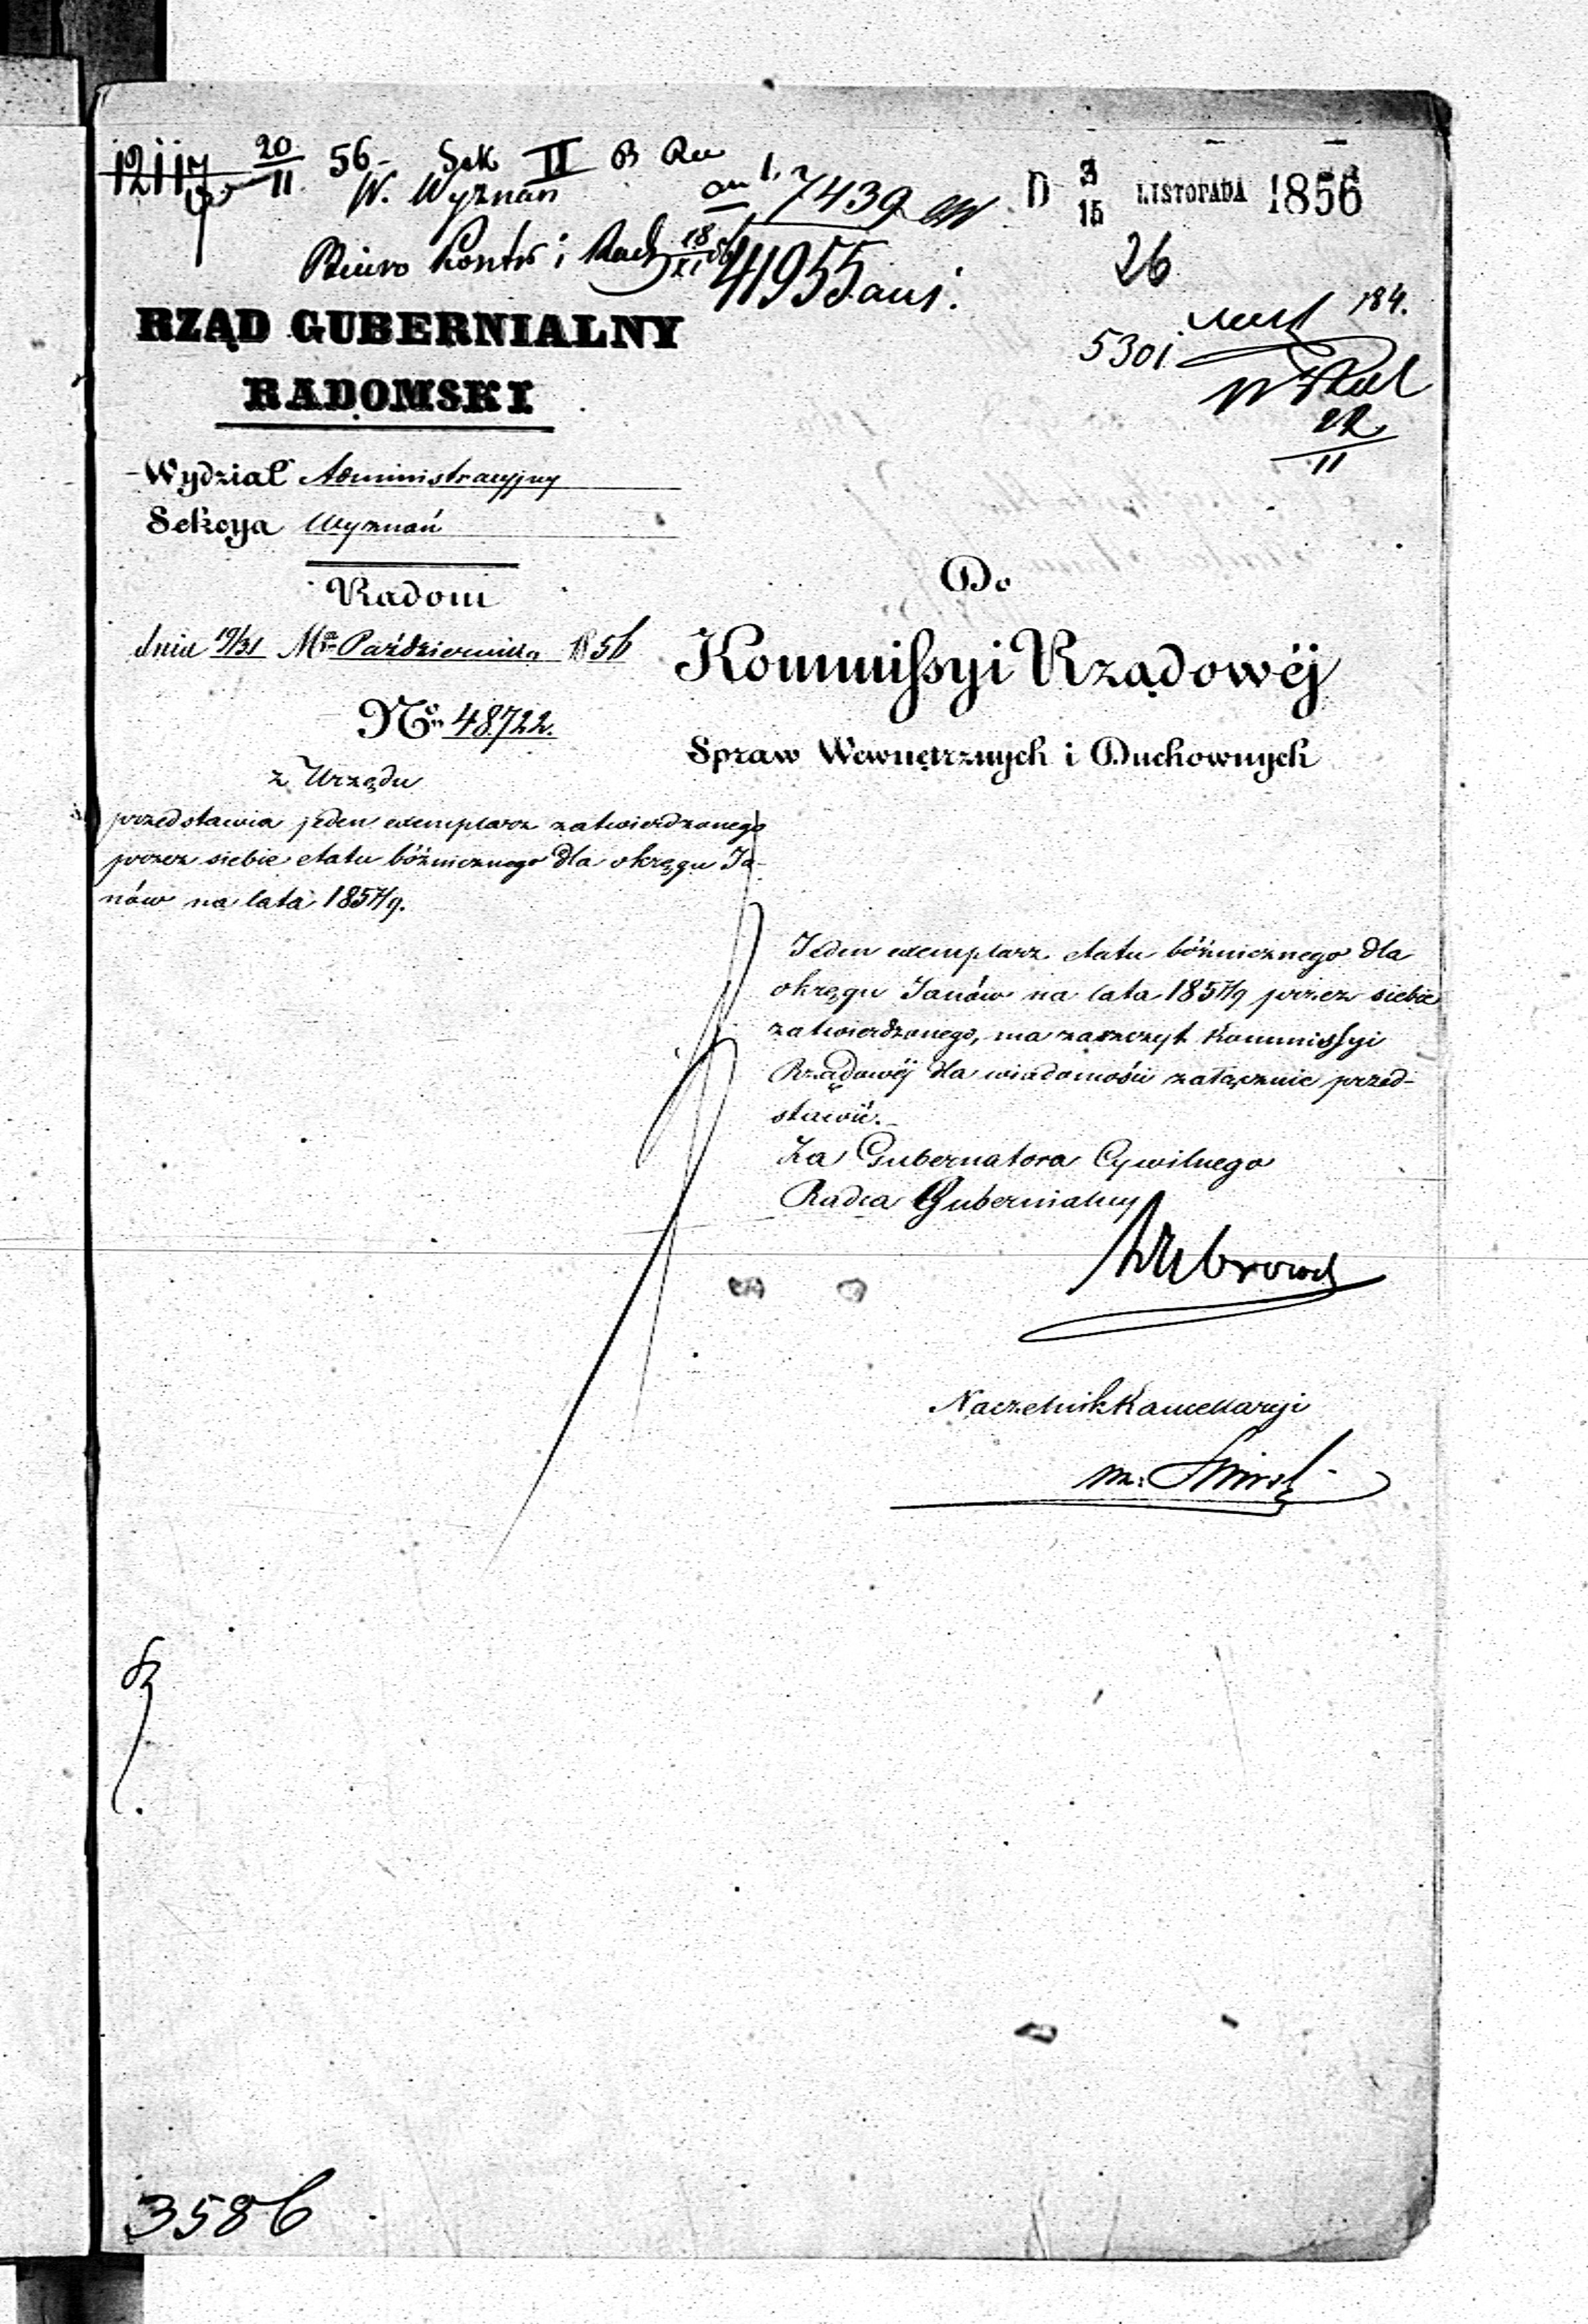 12117 20/11 56 Sek II B
W. Wyznań
7439
D 3/15 LISTOPADA 1856
Biuro Kontr i Rach 18/XI 56
41955
26
184.
5301
22/11
RZĄD GUBERNIALNY
RADOMSKI
Wydział Administracyjny
Sekcya Wyznań
Radom
dnia 19/31 Mca Października 1856
No 48722.
z Urzędu
przedstawia jeden exemplarz zatwierdzonego
przez siebie etatu bóżnicznego dla okręgu Ja-
nów na lata 1857/9.
Do
Kommissyi Rządowéj
Spraw Wewnętrznych i Duchownych
Jeden exemplarz etatu bóżnicznego dla
okręgu Janów na lata 1857/9 przez siebie
zatwierdzonego, ma zaszczyt Kommissyi
Rządowéj dla wiadomości załącznie przed-
stawić.
Za Gubernatora Cywilnego
Radca Gubernialny
Naczelnik Kancellaryi
3586